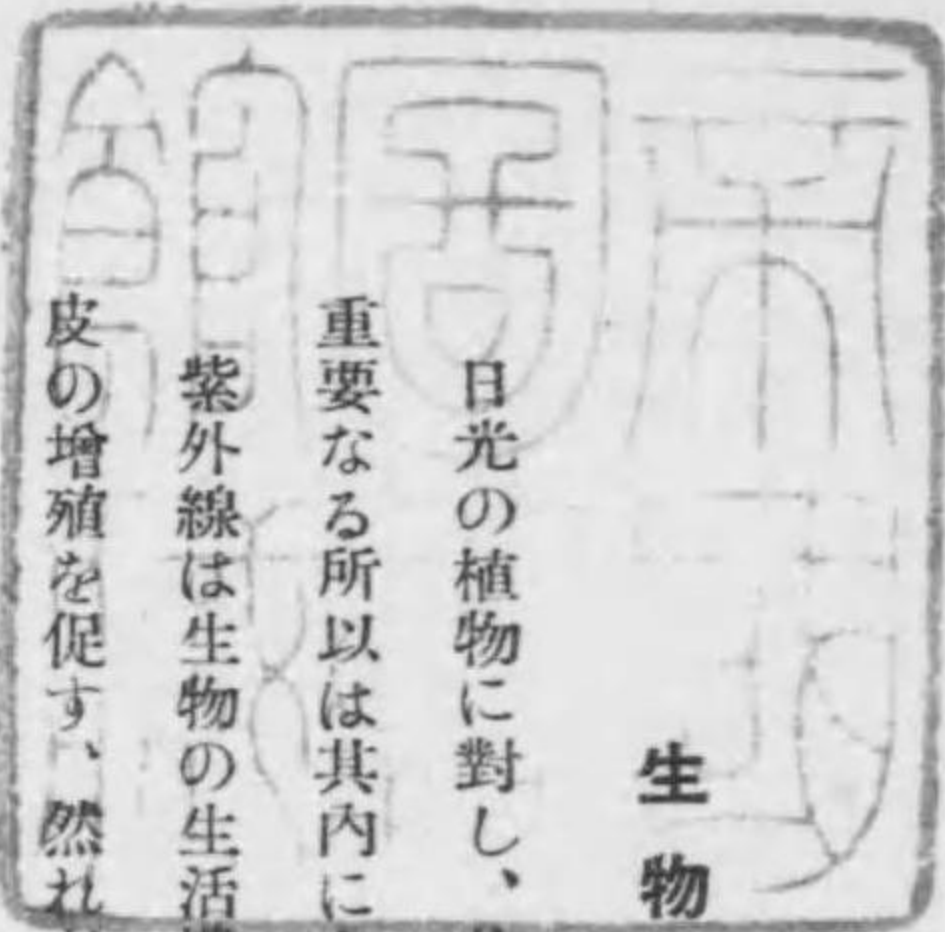 生物
日光の植物に對し、
重要なる所以は其内に
紫外線は生物の生活
皮の增殖を促す、然れ